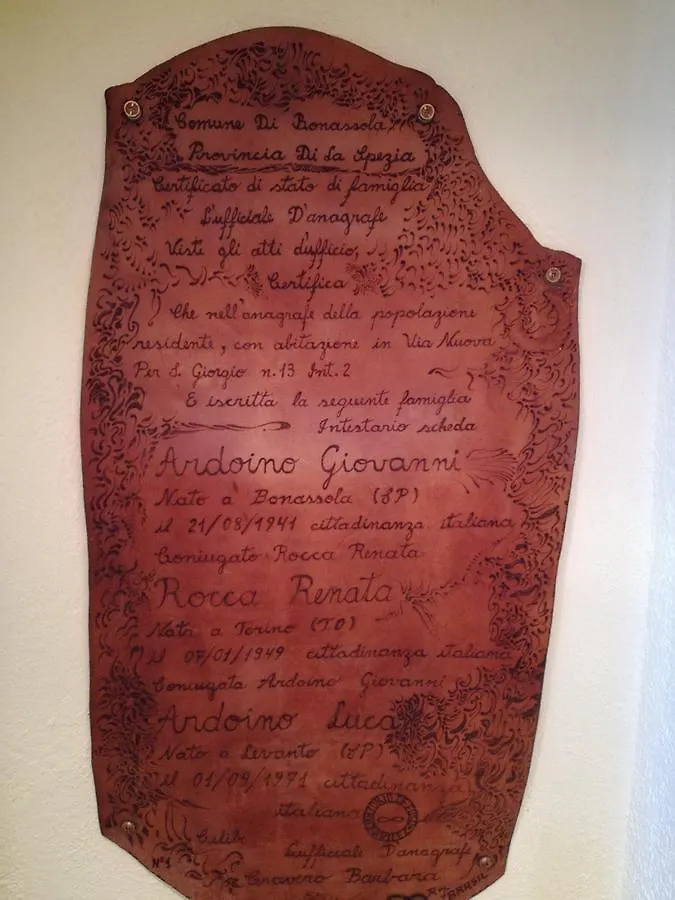 Comune Di Bonassola
Provincia Di La Spezia
Certificato di stato di famiglia
L'ufficiale D'anagrafe
Visti gli atti d'ufficio,
Certifica
Che nell'anagrafe della popolazione
residente, con abitazione in Via Nuova
Per S. Giorgio n.13 Int.2
E iscritta la seguente famiglia
Intestario scheda
Ardoino Giovanni
Nato a Bonassola (SP)
il 21/08/1941 cittadinanza italiana
Coniugato Rocca Renata
Rocca Renata
Nata a Torino (TO)
il 07/01/1949 cittadinanza italiana
Coniugata Ardoino Giovanni
Ardoino Luca
Nato a Levanto (SP)
il 01/09/1971 cittadinanza
italiana
Celibe
L'ufficiale D'anagrafe
N°1
Cravero Barbara